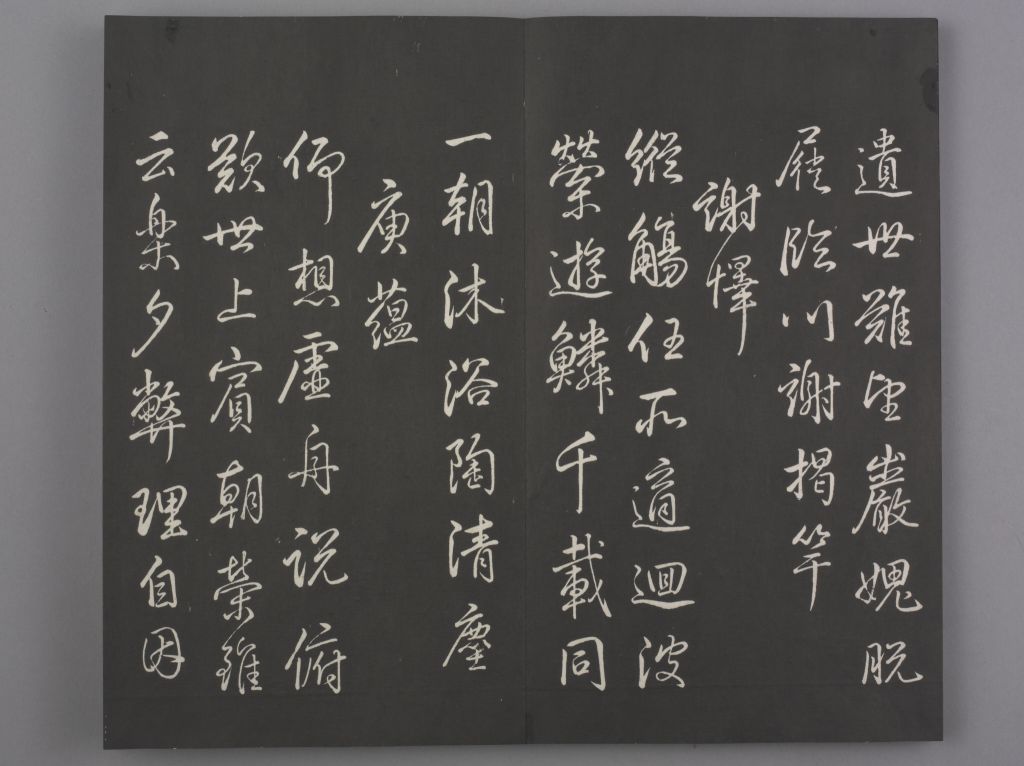 遺世難望巖愧脫
屐臨川謝揭竿
謝懌
縱觴任所適迴波
縈遊鱗千載同
一朝沐浴陶清塵
庾蘊
仰想虛舟說俯
歎世上賓朝榮雖
云樂夕弊理自因